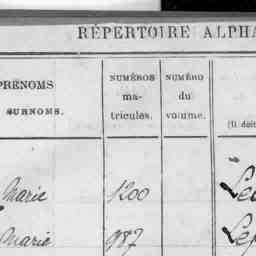 RÉPERTOIRE ALPHA
PRÉNOMS
SURNOMS.
NUMÉROS
ma-
tricules.
NUMÉRO
du
volume.
(Il doit
Marie 1200
Marie 987